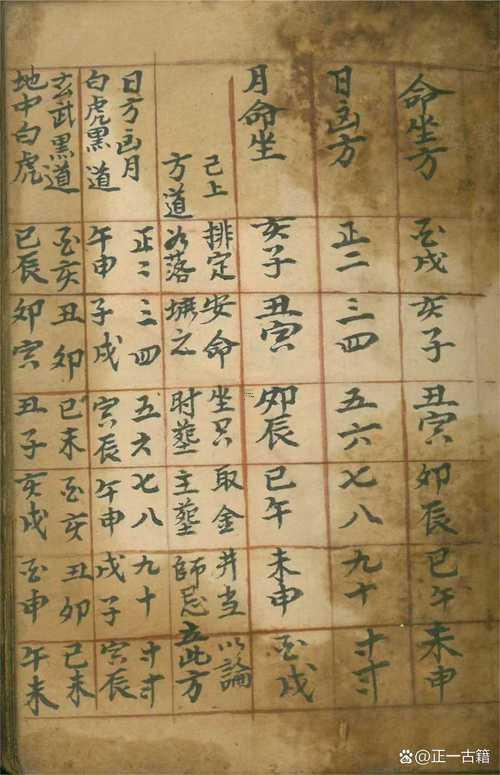 命坐方 酉戌 亥子 丑寅 卯辰 巳午 未申
日凶方 正二 三四 五六 七八 九十 十一十二
月命坐 亥子 丑寅 卯辰 巳午 未申 酉戌
已上排定安命坐只取金井当以論
方道如落壙之时塟主塟師忌立此方
日方凶月 正二 三四 五六 七八 九十 十一十二
白虎黑道 午申 子戌 寅辰 午申 戌子 寅辰
玄武黑道 酉亥 丑卯 巳未 酉亥 丑卯 巳未
地中白虎 巳辰 卯寅 丑子 亥戌 酉申 午未
@正一古籍